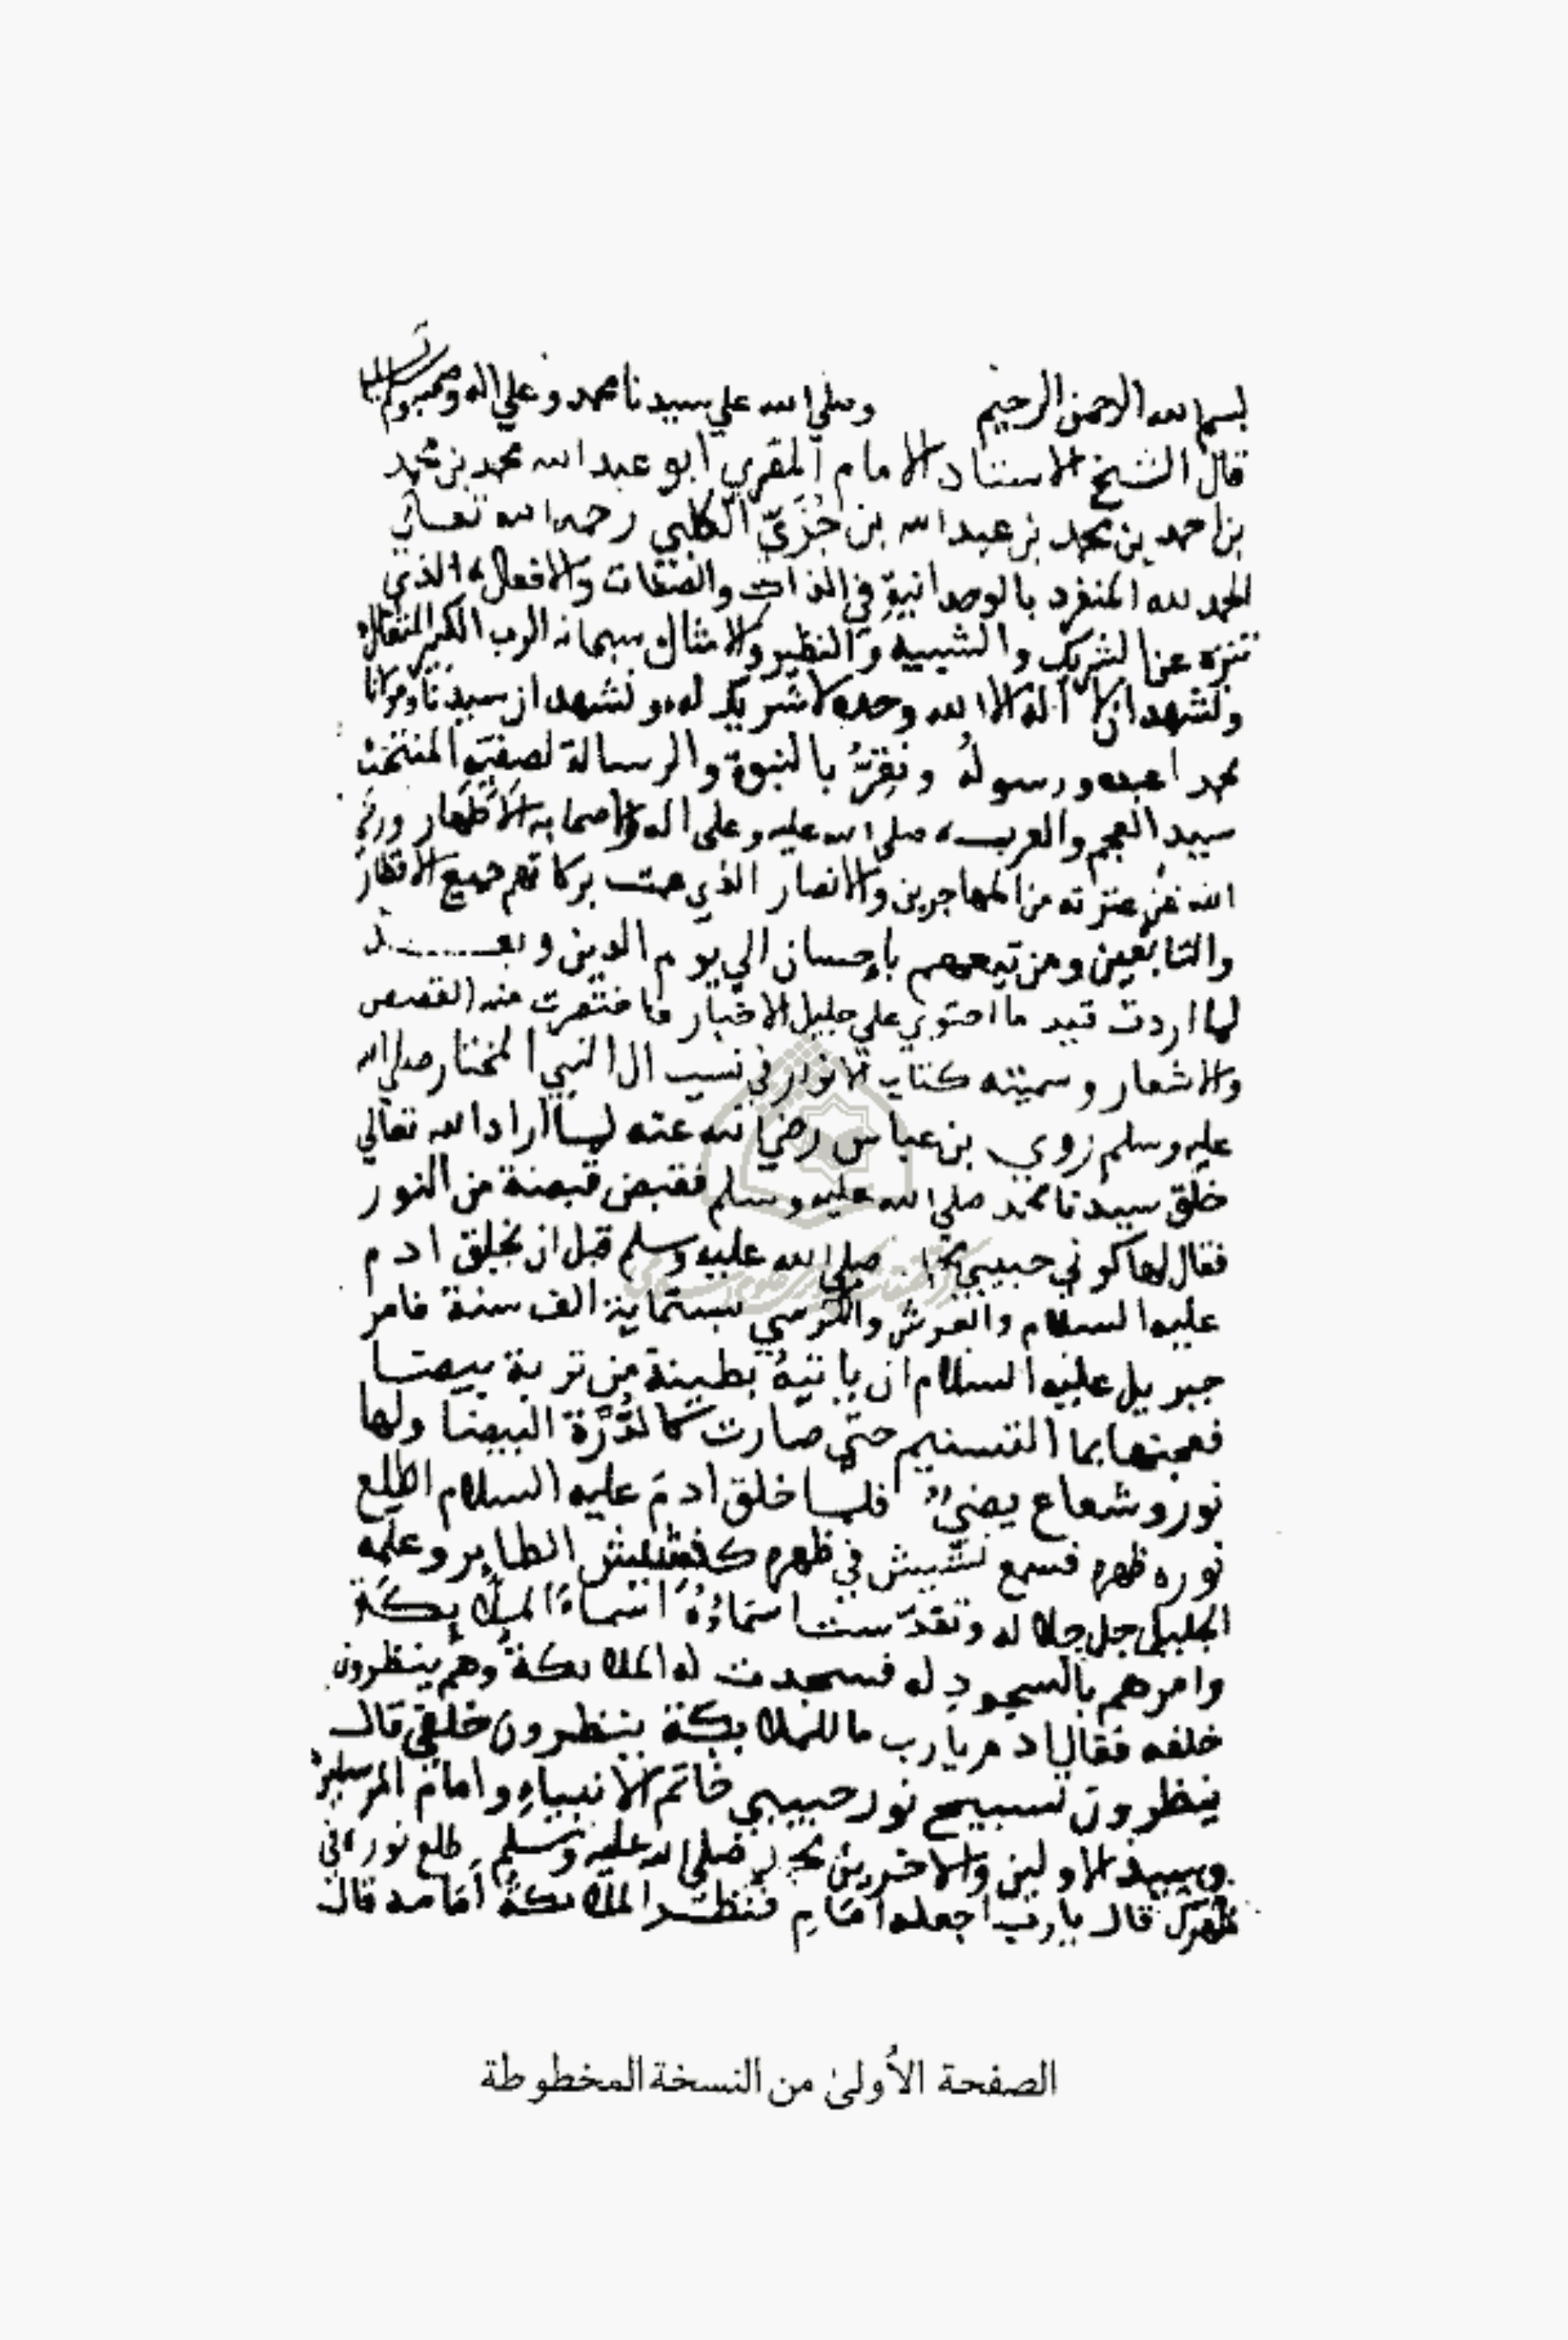 بسم الله الرحمن الرحيم وصلي الله علي سيدنا محمد وعلي اله وصحبه وسلم تسليما
قال الشيخ الاستاد الامام المقري ابو عبد الله محمد بن محمد
بن احمد بن محمد بن عبد الله بن جُزَيّ الكلبي رحمه الله تعالي
الحمد لله المنفرد بالوحدانية في الذات والصفات والافعال، الذي
تنزه عن الشريك والشبيه والنظير والامثال سبحانه الرب الكبير المتعال
ونشهد ان لا اله الا الله وحده لا شريك له، ونشهد ان سيدنا ومولانا
محمدا عبده ورسوله ونقرّ بالنبوة والرسالة لصفيه المنتخب
سيد العجم والعرب، صلي الله عليه وعلى اله واصحابه الاطهار ورضي
الله عن عترته من المهاجرين والانصار الذي عمت بركاتهم جميع الاقطار
والتابعين ومن تبعهم بإحسان الي يوم الدين وبعد
لما اردت قيد ما احتوي علي جليل الاخبار فاختصرت منه القصص
والاشعار وسميته كتاب الانوار في نسب ال النبي المختار صلي الله
عليه وسلم روي بن عباس رضي الله عنه لما اراد الله تعالي
خلق سيدنا محمد صلي الله عليه وسلم فقبض قبضة من النور
فقال لها كوني حبيبي صلي الله عليه وسلم قبل ان يخلق ادم
عليه السلام والعرش والكرسي بستماية الف سنة فامر
جبريل عليه السلام ان ياتيه بطينة من تربة بيضا
فعجنها بما التسنيم حتي صارت كالدُّرَّة البيضا ولها
نور وشعاع يضيءُ فلما خلق ادم عليه السلام اطلع
نوره ظهره فسمع نشيش في ظهره كنشيش الطاير وعلمه
الجليل جل جلاله وتقدّست اسماؤُهُ اسماءَ الملايكة
وامرهم بالسجود له فسجدت له الملايكة وهم ينظرون
خلفه فقال ادم يا رب ما للملايكة ينظرون خلفي قال
ينظرون تسبيح نور حبيبي خاتم الانبياءِ وامام المرسلين
وسيد الاولين والاخرين محمد صلي الله عليه وسلم طلع نوره في
ظهرك قال يا رب اجعله امامِ فنظر الملايكة أمامه قال
الصفحة الأولىٰ من النسخة المخطوطة